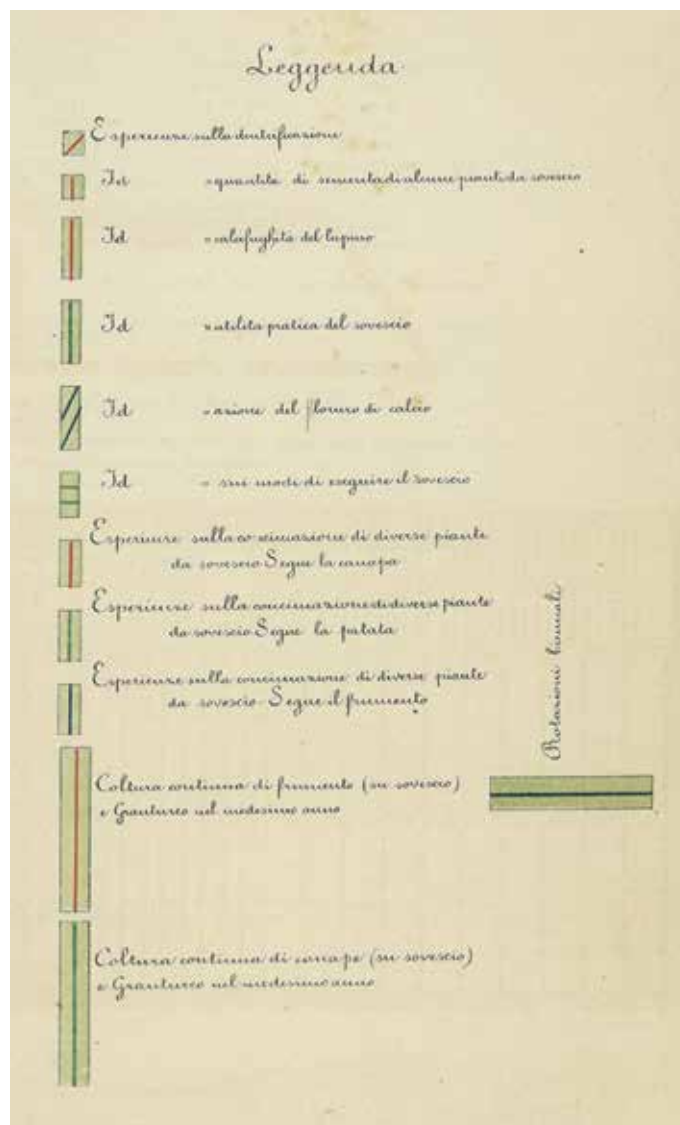 Leggenda
Esperienze sulla denitrificazione
Id " quantità di sementa di alcune piante da sovescio
Id " del lupino
Id " utilità pratica del sovescio
Id " azione del floruro di calcio
Id " sui modi di eseguire il sovescio
Esperienze sulla concimazione di diverse piante
da sovescio Segue la canapa
Esperienze sulla concimazione di diverse piante
da sovescio Segue la patata
Esperienze sulla concimazione di diverse piante
da sovescio Segue il frumento
Rotazioni biennali
Coltura continua di frumento (su sovescio)
e Granturco nel medesimo anno
Coltura continua di canape (su sovescio)
e Granturco nel medesimo anno